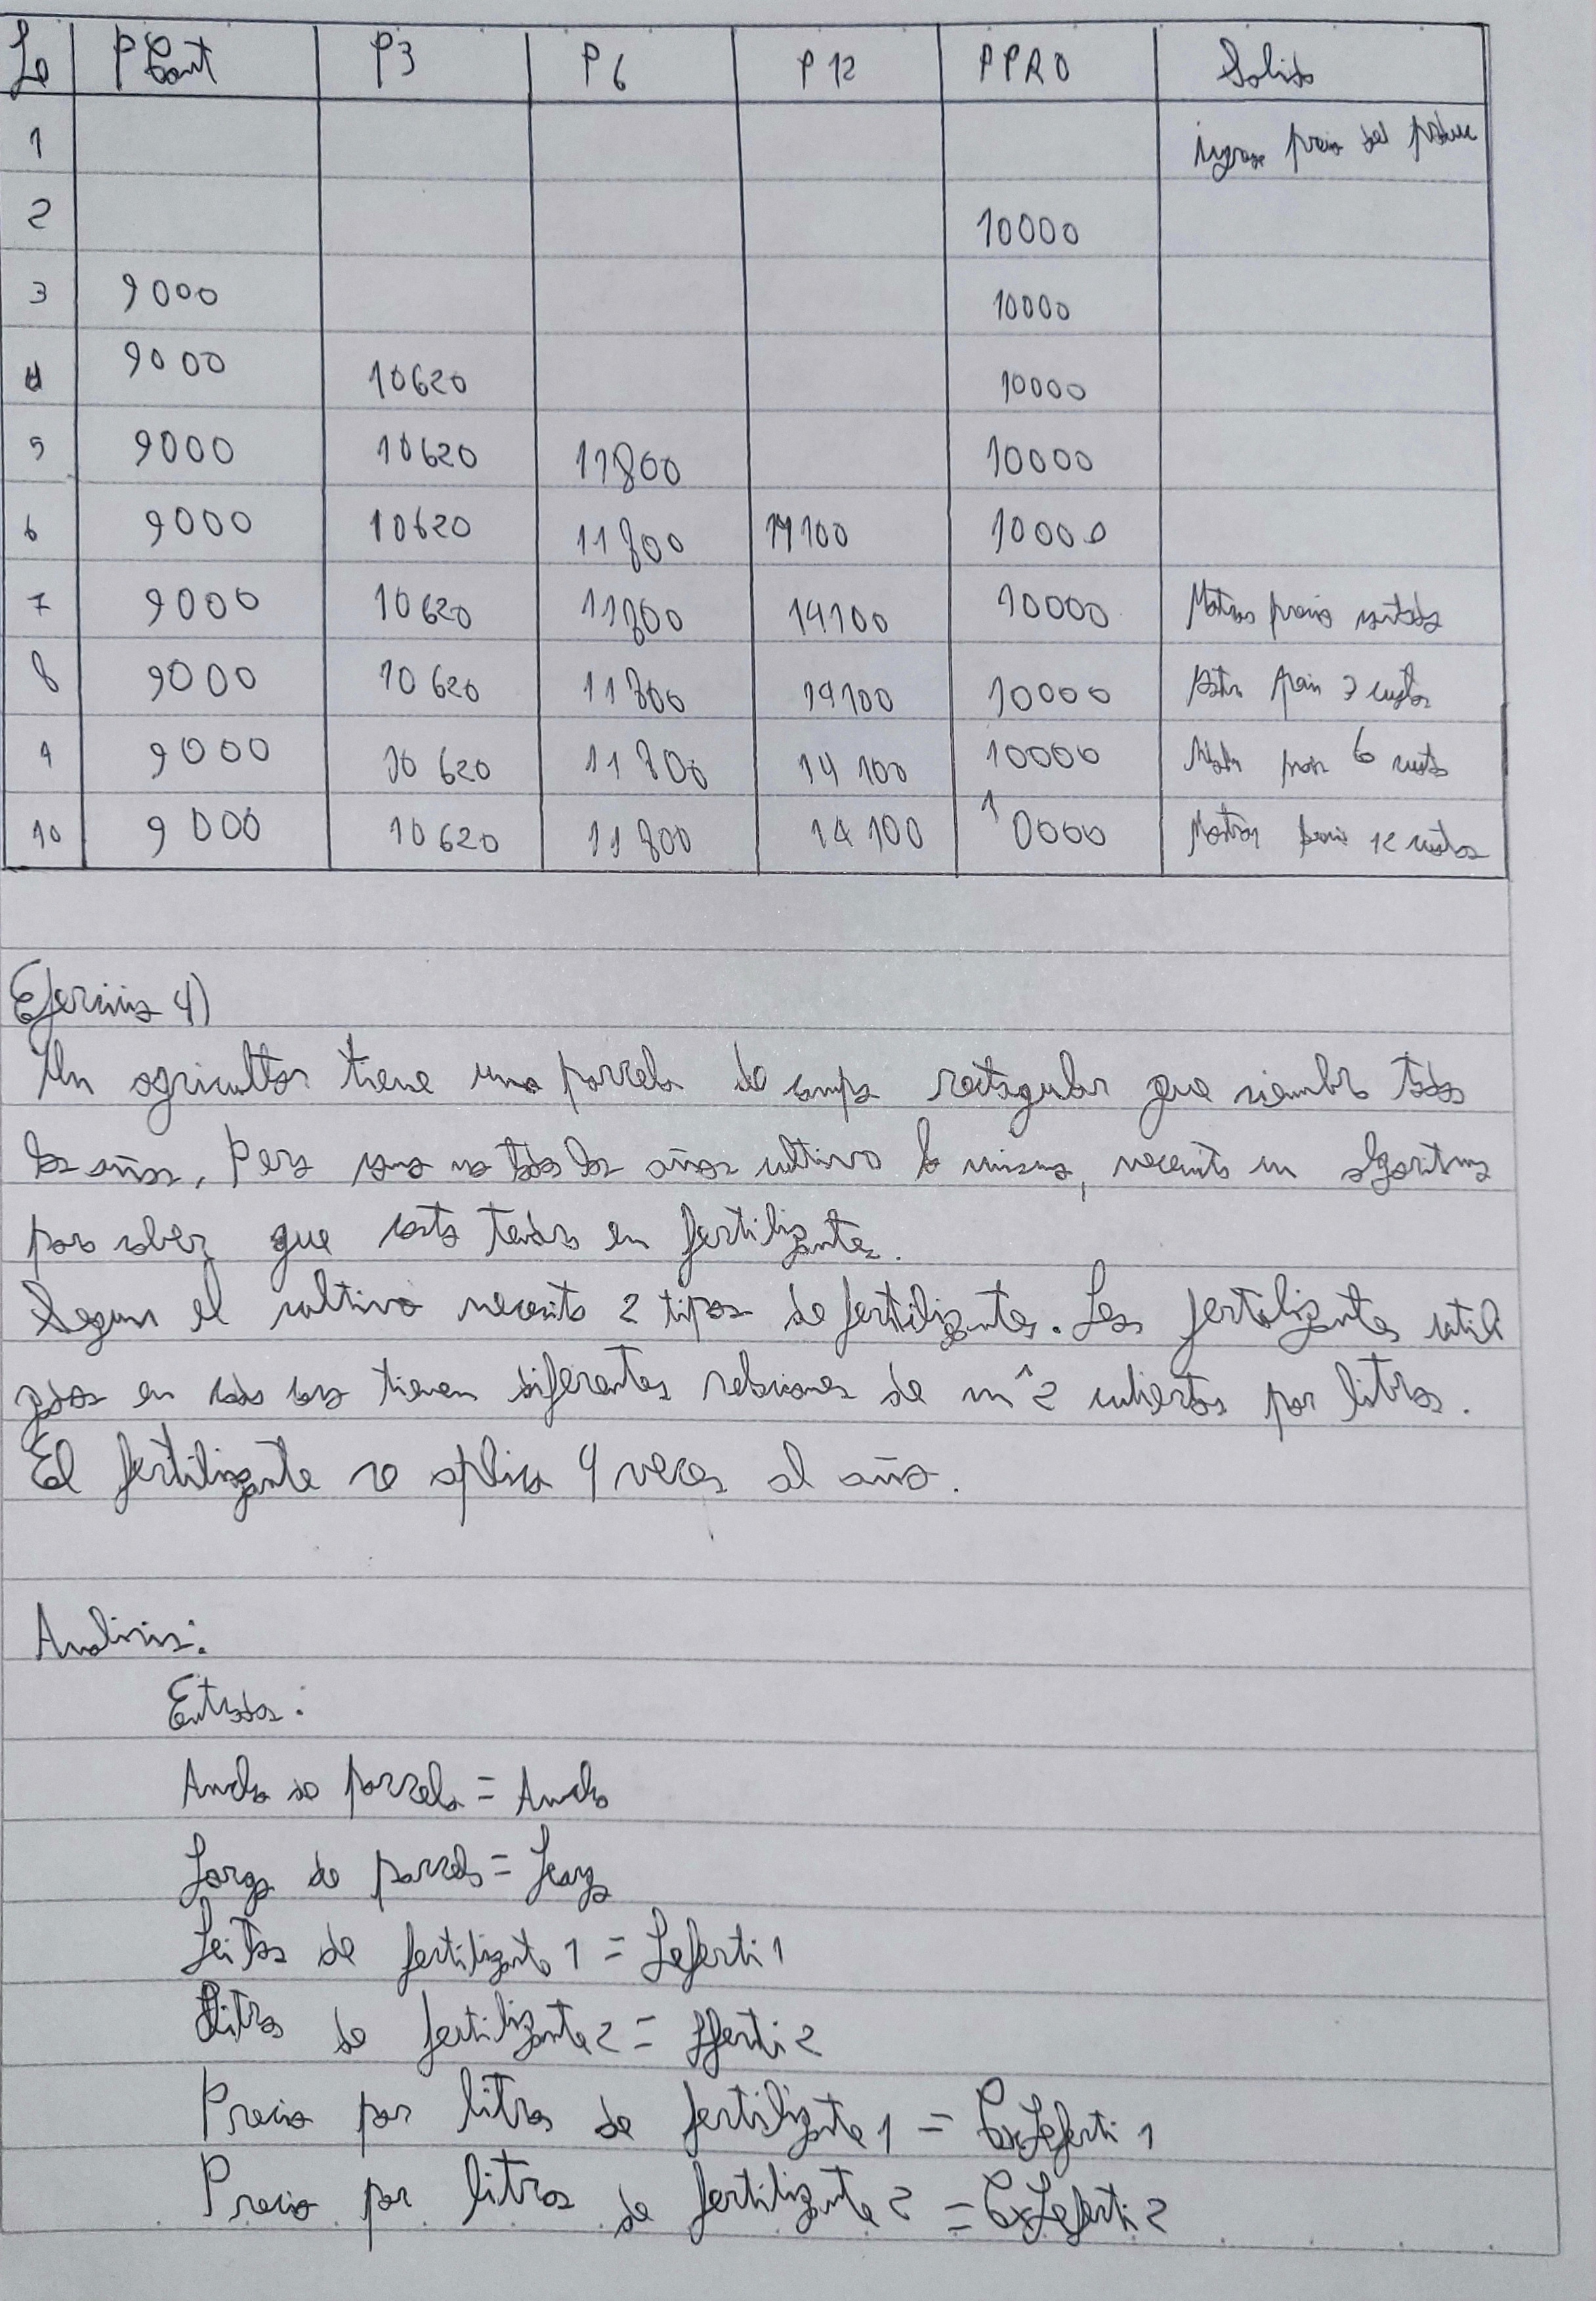 Le PCont P3 P6 P12 PPRO Salida
1 Ingrese precio del produc
2 10000
3 9000 10000
4 9000 10620 10000
5 9000 10620 11800 10000
6 9000 10620 11800 14100 10000
7 9000 10620 11800 14100 10000 Mostrar precio contado
8 9000 10620 11800 14100 10000 precio 3 cuotas
9 9000 10620 11800 14100 10000 6 cuotas
10 9000 10620 11800 14100 10000 Mostrar precio 12 cuotas
Ejercicio 4)
Un agricultor tiene una parcela de campo rectagular que siembra todos
los años. Pero como no todos los años cultiva lo mismo, necesita un algoritmo
para saber que costo tendra en fertilizantes.
Segun el cultivo necesita 2 tipos de fertilizantes. Los fertilizantes utili
zados en cada caso tienen diferentes relaciones de m^2 cubiertos por litros.
El fertilizante se aplica 4 veces al año.
Analisis:
Entradas:
Ancho de parcela = Ancho
Largo de parcela = Largo
Litros de fertilizante 1 = Leferti 1
Litros de fertilizante 2 = Lferti 2
Precio por litros de fertilizante 1 = CxLeferti 1
Precio por litros de fertilizante 2 = CxLeferti 2